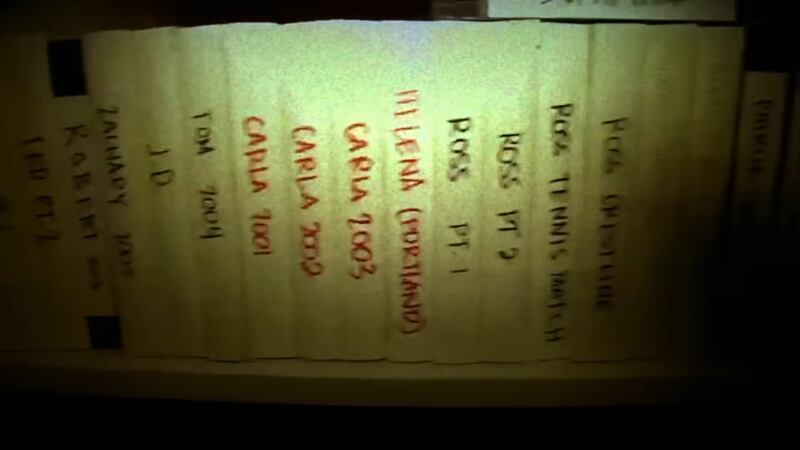 TED PT. 2
ROBERT
ZACHARY
JD
TOM 2004
CARLA 2001
CARLA 2002
CARLA 2003
HELENA (PORTLAND)
ROSS PT. 1
ROSS PT 2
ROSS TENNIS MATCH
ROSS OFFSTEDE